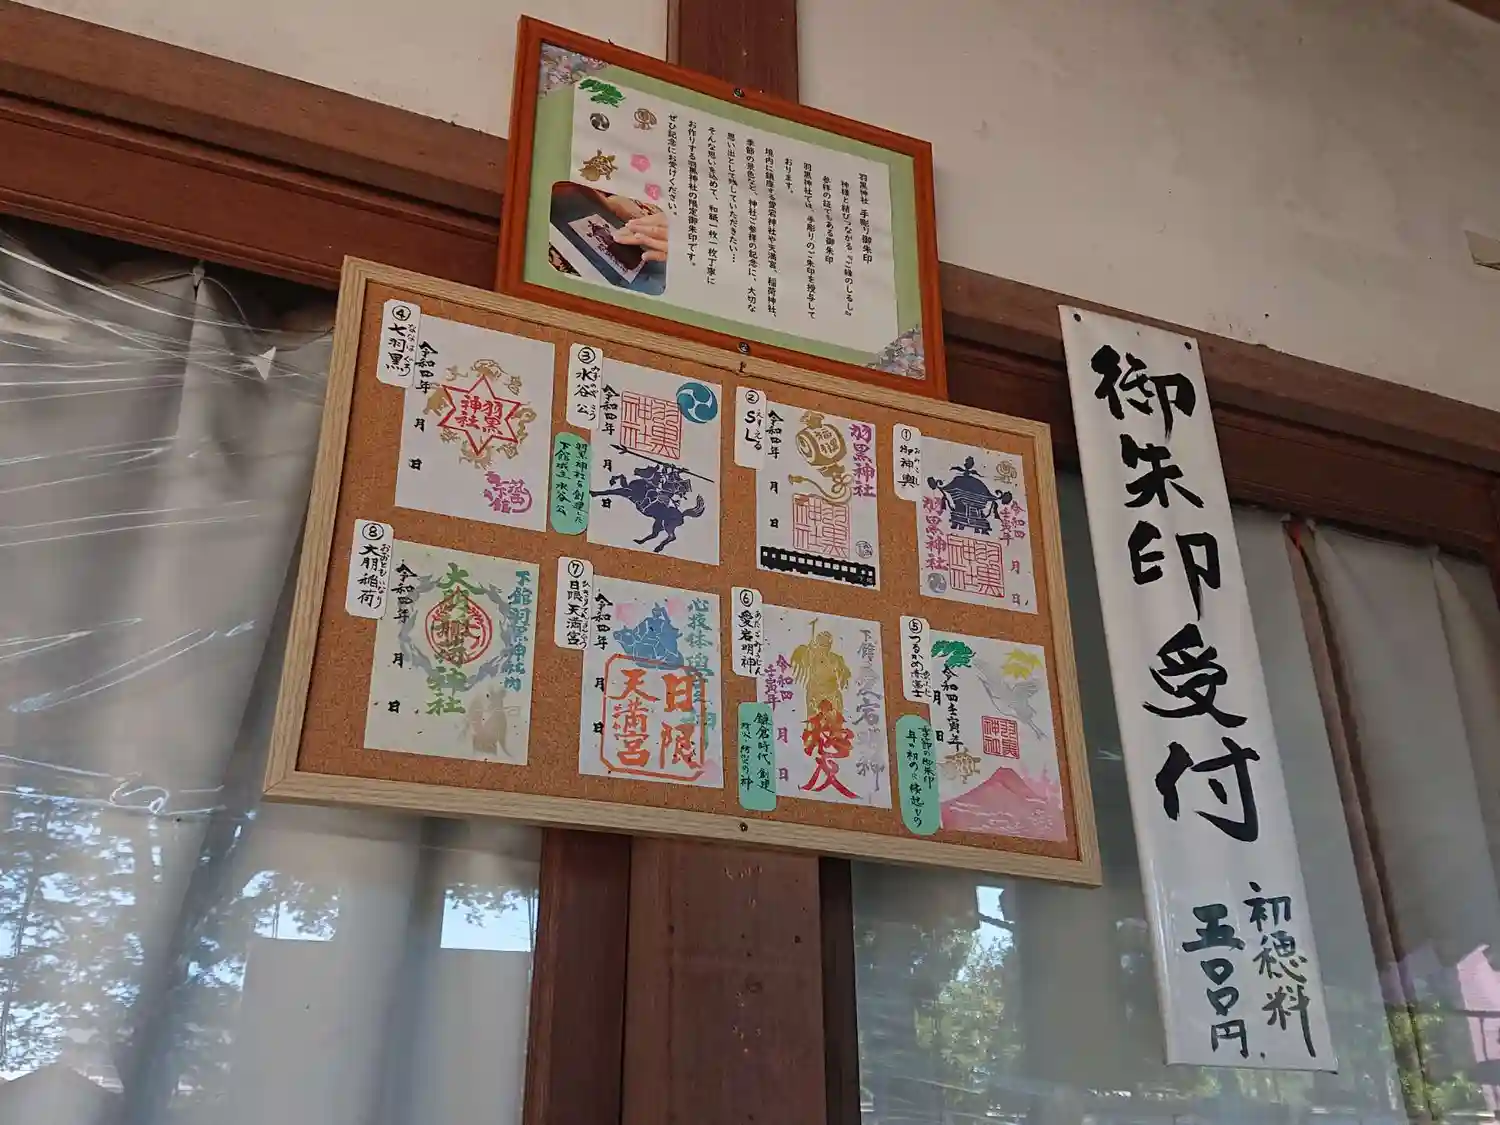 羽黒神社 手彫り御朱印
神様と結びつながる『ご縁のしるし』
参拝の証でもある御朱印
羽黒神社では、手彫りのご朱印を授与して
おります。
境内に鎮座する愛宕神社や天満宮、稲荷神社、
季節の景色など、神社ご参拝の記念に、大切な
思い出として残していただきたい…
そんな思いを込めて、和紙一枚一枚丁寧に
お作りする羽黒神社の限定御朱印です。
ぜひ記念にお受けください。
御朱印受付
初穂料
五〇〇円
①御神輿
羽黒神社
令和四
壬寅年
月
日
②SL
えすえる
令和四年
月
日
羽黒神社
③水谷公
令和四年
月
日
羽黒神社を創建した
下館城主 水谷公
④七羽黒
令和四年
月
日
羽黒
神社
⑤つるかめ赤富士
令和四壬寅年
月
日
季節の御朱印
⑥愛宕明神
令和四
壬寅年
月
日
下館愛宕明神
鎌倉時代、創建
⑦日限天満宮
令和四年
月
日
日限
天満宮
⑧大朋稲荷
令和四年
月
日
下館羽黒神社内